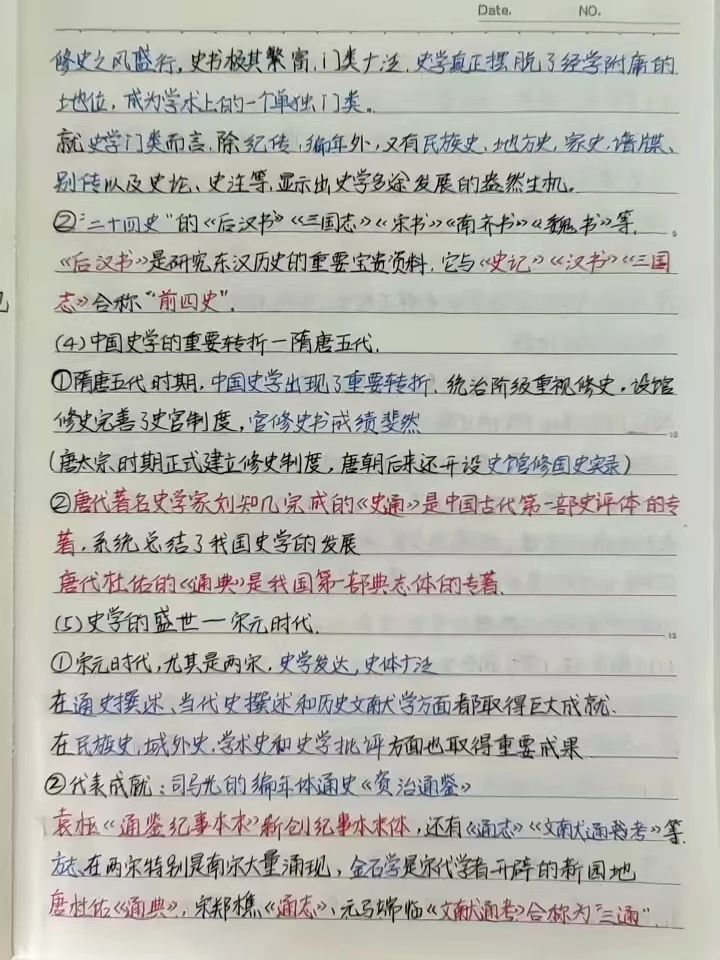 Date.    NO.
修史之风盛行，史书极其繁富，门类广泛，史学真正摆脱了经学附庸的
地位，成为学术上的一个单独门类。
就史学门类而言，除纪传，编年外，又有民族史、地方史，家史，谱牒、
别传以及史论、史注等，显示出史学多途发展的盎然生机。
②"二十四史"的《后汉书》《三国志》《宋书》《南齐书》《魏书》等。
《后汉书》是研究东汉历史的重要宝贵资料，它与《史记》《汉书》《三国
志》合称"前四史"。
(4)中国史学的重要转折—隋唐五代.
①隋唐五代时期，中国史学出现了重要转折，统治阶级重视修史，设馆
修史完善了史官制度，官修史书成绩斐然
10
(唐太宗时期正式建立修史制度，唐朝后来还开设史馆修国史实录)
②唐代著名史学家刘知几完成的《史通》是中国古代第一部史评体的专
著，系统总结了我国史学的发展
唐代杜佑的《通典》是我国第一部典志体的专著.
(5)史学的盛世—宋元时代.
15
①宋元时代，尤其是两宋，史学发达，史体广泛
在通史撰述、当代史撰述和历史文献学方面都取得巨大成就.
在民族史，域外史，学术史和史学批评方面也取得重要成果
②代表成就：司马光的编年体通史《资治通鉴》
袁枢《通鉴纪事本末》新创纪事本末体，还有《通志》《文献通考》等.
方志、在两宋特别是南宋大量涌现，金石学是宋代学者开辟的新园地
唐杜佑《通典》，宋郑樵《通志》、元马端临《文献通考》合称为"三通".